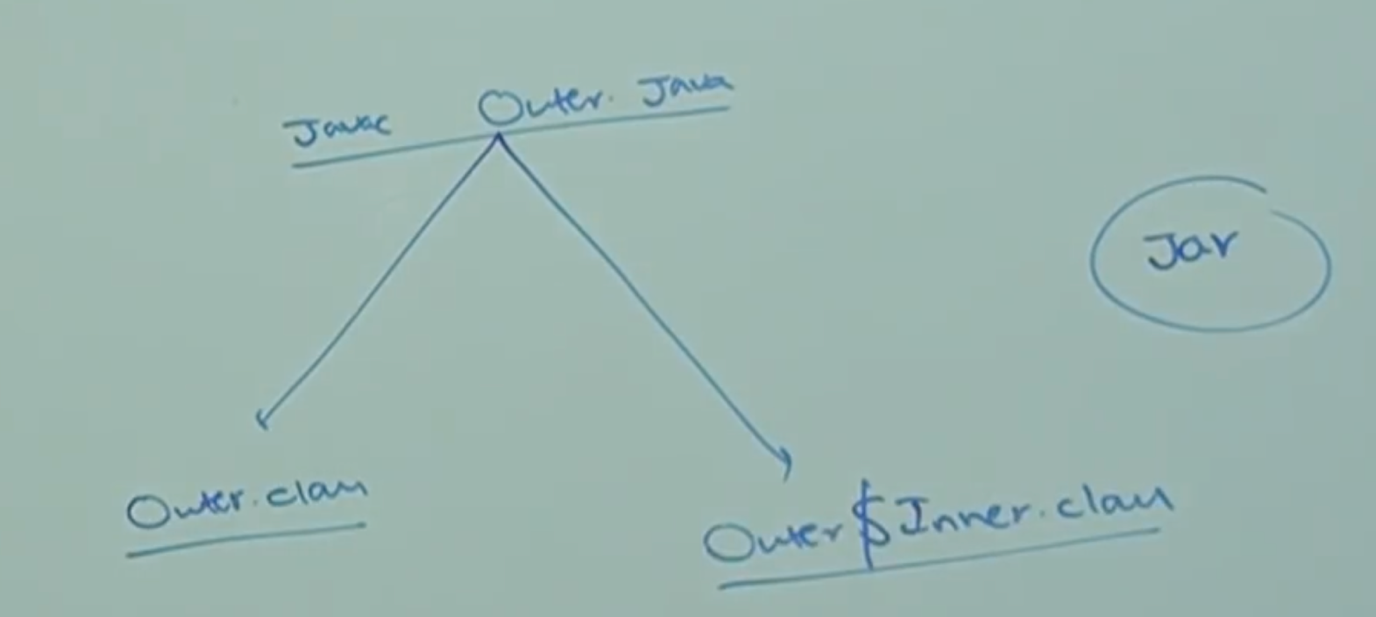 Javac Outer. Java
Jar
Outer.class
Outer$Inner.class